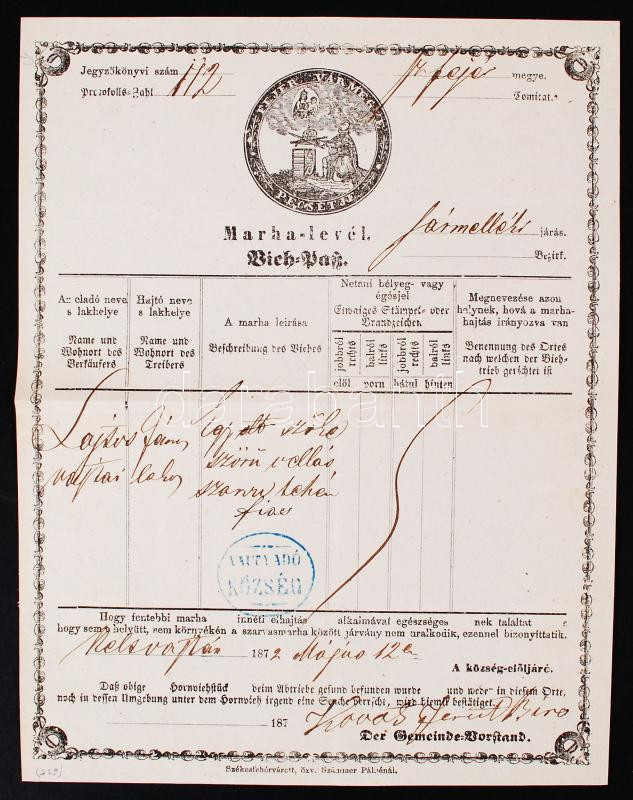 Jegyzőkönyvi szám 112
Protokolls-Zahl
megye.
Comitat.
FEJÉR VÁRMEGYE
PECSÉTJE
Marha-levél.
járás.
Vieh-Paß.
Bezirk.
Az eladó neve s lakhelye
Name und Wohnort des Verkäufers
Hajtó neve s lakhelye
Name und Wohnort des Treibers
A marha leirása
Beschreibung des Viehes
Netani bélyeg- vagy égősjel
Etwaiges Stämpel- oder Brandzeichen
jobbról rechts
balról links
jobbról rechts
balról links
elöl vorn
hátul hinten
Megnevezése azon helynek, hová a marhahajtás irányozva van
Benennung des Ortes nach welchem der Viehtrieb gerichtet ist
Lajtos János Egy szőke
lakos szőrü vellás
szarvu tehén
KÖZSÉG
Hogy fentebbi marha innéti elhajtás alkalmával egészséges nek találtatott
hogy sem e helyütt, sem környékén a szarvasmarha között járvány nem uralkodik, ezennel bizonyittatik.
1872 Május 12én
A község-elöljáró.
Daß obige Hornviehstück beim Abtriebe gesund befunden wurde und weder in diesem Orte,
noch in dessen Umgebung unter dem Hornvieh irgend eine Seuche herrscht, wird hiemit bestätiget.
187 Kovács Biro
Der Gemeinde-Vorstand.
Székesfehérvárott, özv. Számmer Pálnénál.
darabanth